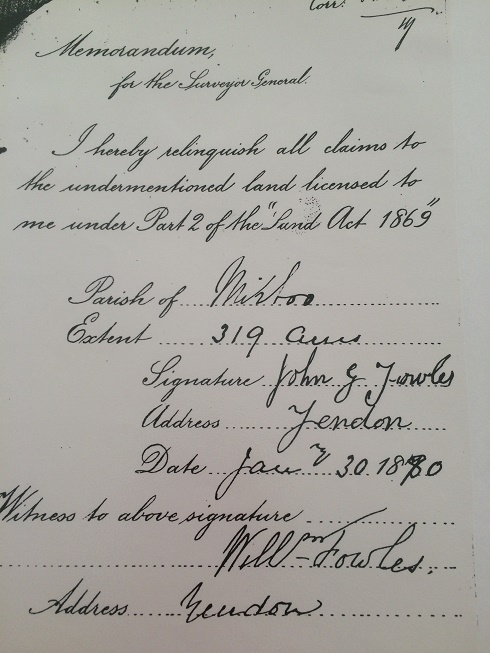 Corr.
Memorandum,
for the Surveyor General.
I hereby relinquish all claims to
the undermentioned land licensed to
me under Part 2 of the "Land Act 1869"
Parish of
Extent ..... 319 acres
Signature John G Fowles
Address ..... Yendon
Date Jany 30 1880
Witness to above signature
Willm Fowles.
Address ..... Yendon